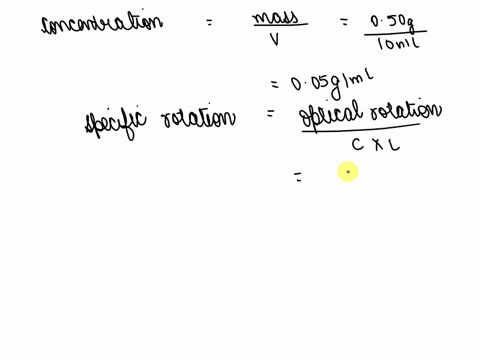 concentration = mass / V = 0.50g / 10ml
= 0.05g/ml
specific rotation = optical rotation / C X L
=